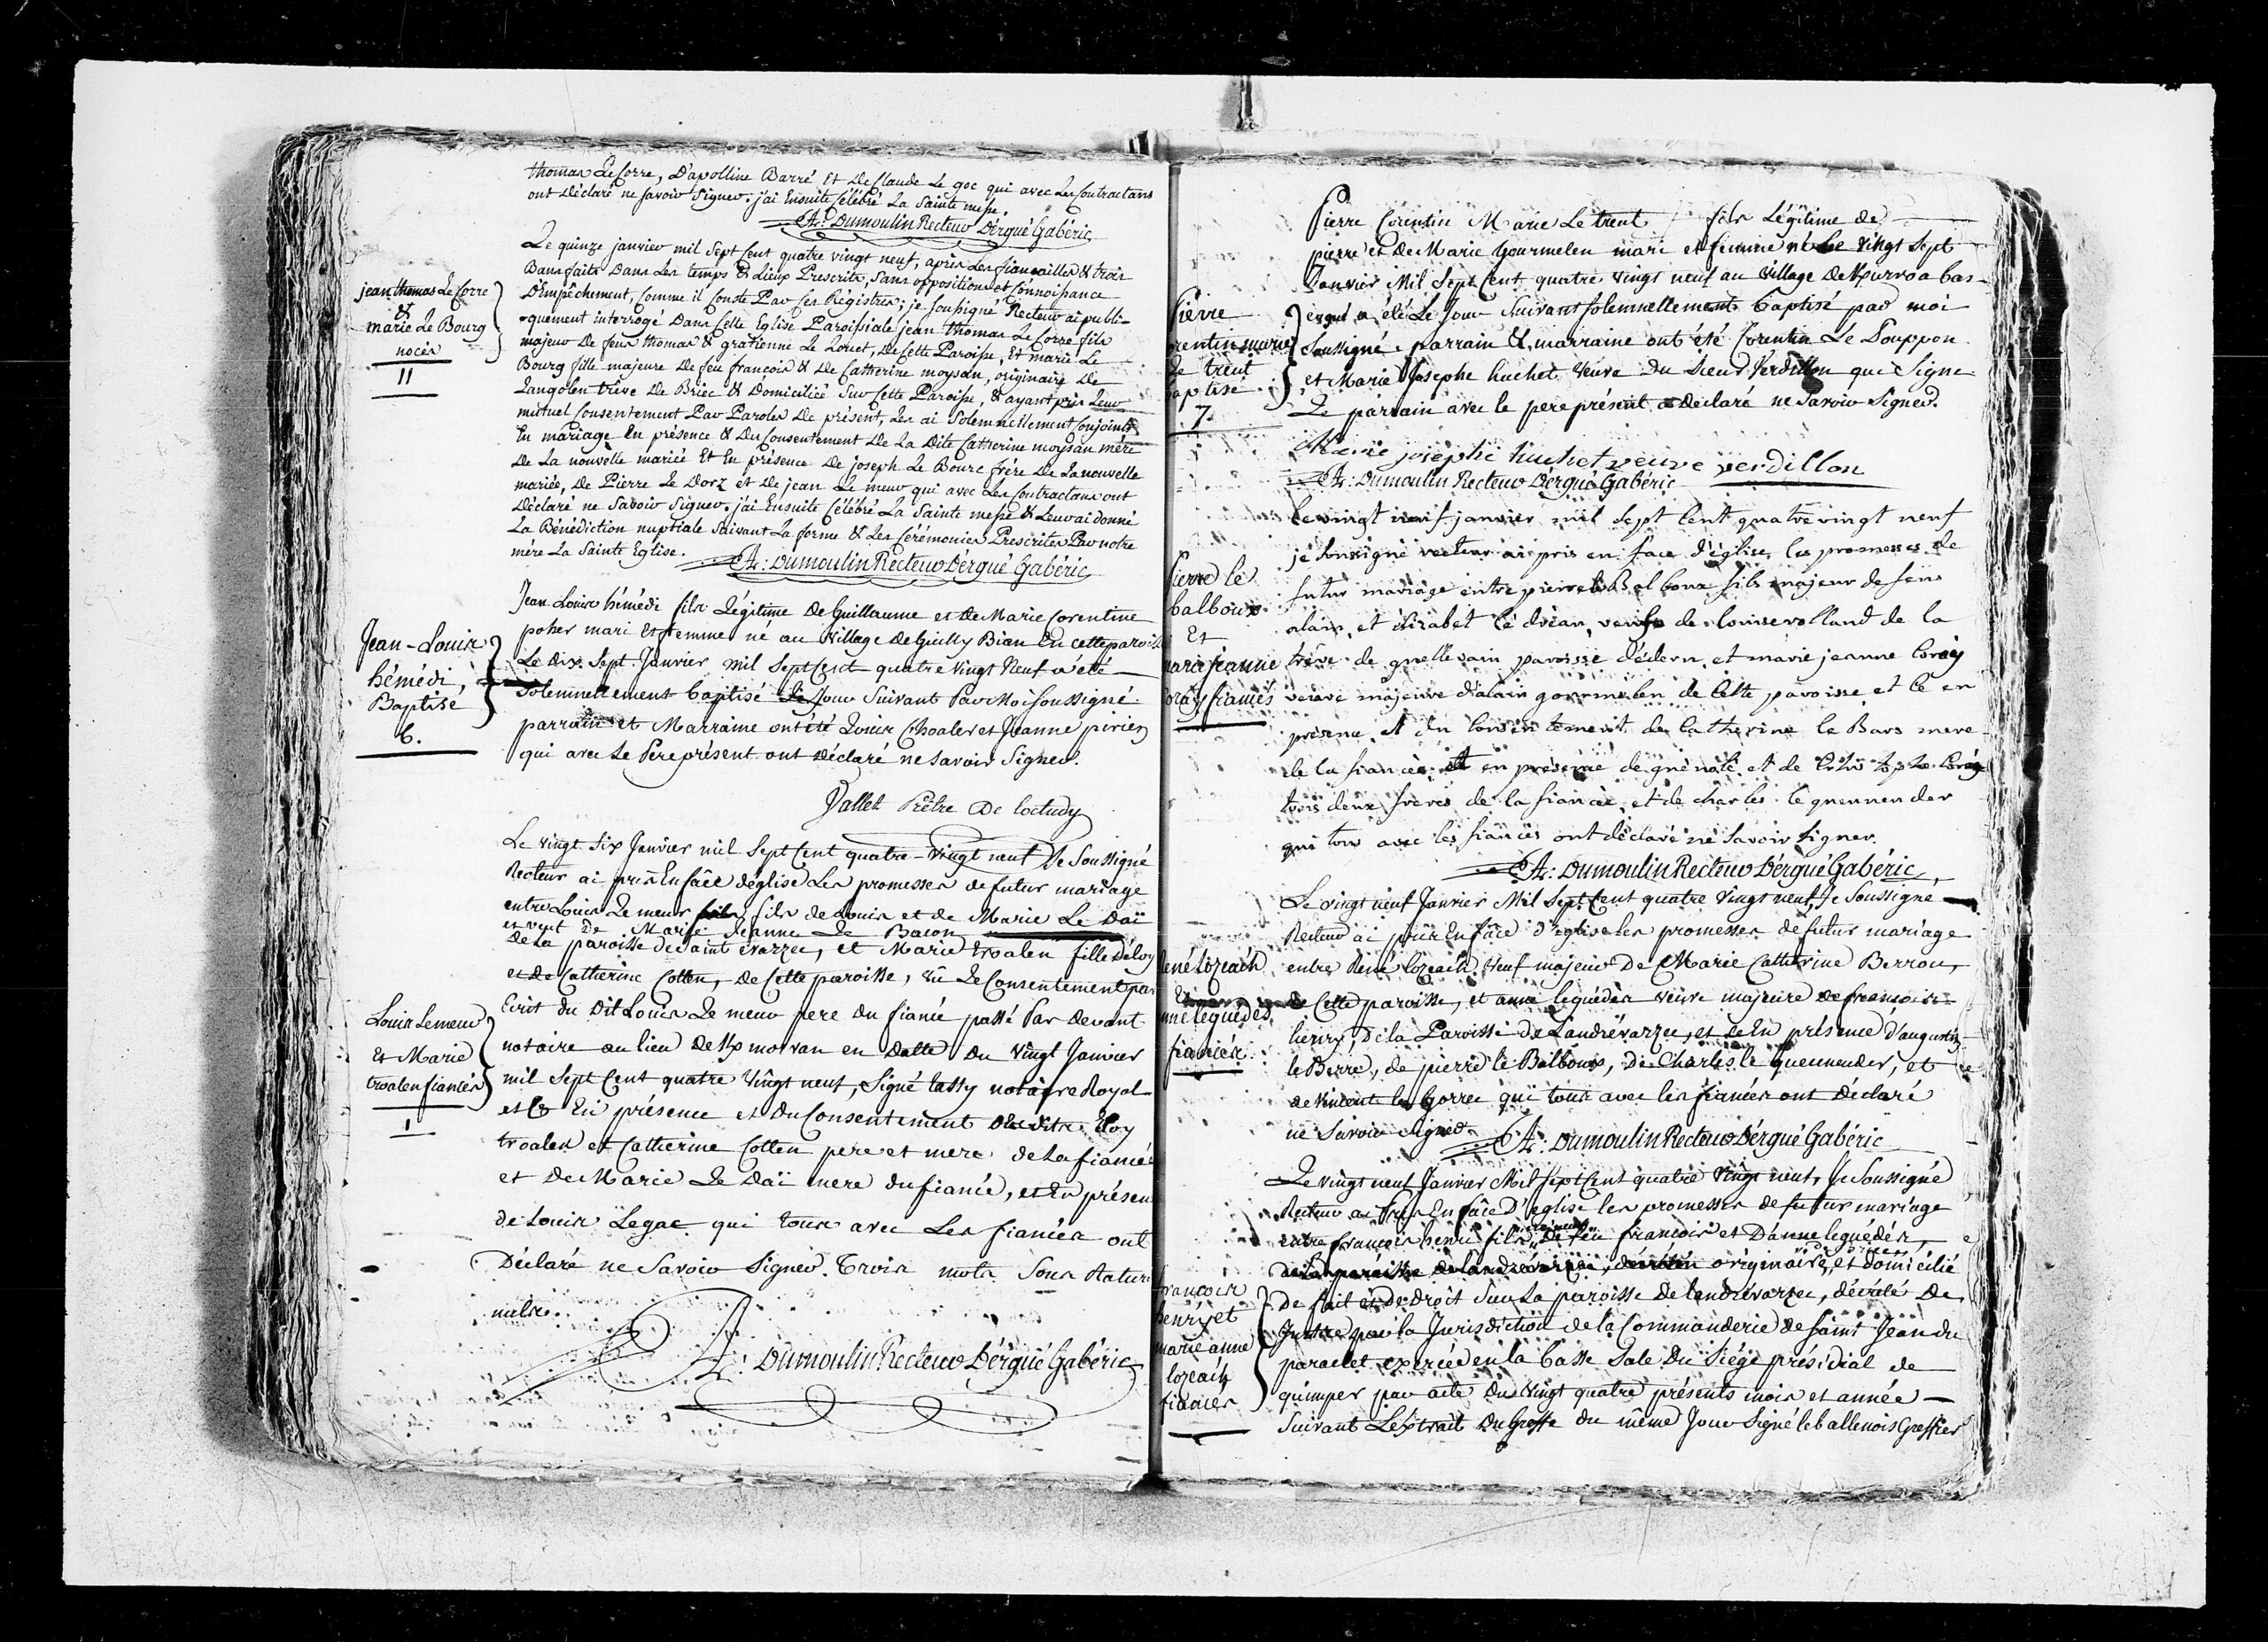 thomas Le Corre, D'apolline Barré Et De Claude Le goc qui avec Les Contractans
ont Déclaré ne Savoir Signer. j'ai Ensuite Célébré La Sainte messe.
A: Dumoulin Recteur D'ergué Gabéric
jean thomas Le Corre
&
marie Le Bourg
noces
11
Le quinze janvier mil Sept Cent quatre vingt neuf, après Les fiançailles & trois
Bans faits Dans Les temps & Lieux Prescrits, Sans opposition et Connoissance
D'Empêchement, Comme il Conste Par Ces Régistres; je Soussigné Recteur ai publi-
quement interrogé Dans Cette Eglise Paroissiale jean thomas Le Corre fils
majeur De feus thomas & gratienne Le Louet, De Cette Paroisse, Et marie Le
Bourg fille majeure De feu françois & De Catherine moysan, originaire De
Langolen trève De Briec & Domiciliée Sur Cette Paroisse, & ayant pris Leur
mutuel Consentement Par Paroles De présent, Les ai Solemnellement Conjoints
En mariage En présence & Du Consentement De La Dite Catherine moysan mère
De La nouvelle mariée Et En présence De joseph Le Bourc frère De La nouvelle
mariée, De Pierre Le Dorz et De jean Le meur qui avec Les Contractans ont
Déclaré ne Savoir Signer. j'ai Ensuite Célébré La Sainte messe & Leur ai donné
La Bénédiction nuptiale Suivant La forme & Les Cérémonies Prescrites Par notre
mère La Sainte Eglise.
A: Dumoulin Recteur D'ergué Gabéric
Jean-Louis
hémédi,
Baptisé
6.
Jean Louis hémédi fils Légitime De Guillaume et De Marie Corentine
poher mari Et femme né au Village De Guilly Bian En cette paroisse
Le Dix Sept Janvier mil Sept Cent quatre Vingt Neuf a eté
Solemnellement Baptisé Le Jour Suivant Par Moi Soussigné
parrain et Marraine ont été Louis Choaler et Jeanne pirien
qui avec Le Pere présent ont Déclaré ne Savoir Signer.
Vallet Prêtre De loctudy
Louis Lemeur
Et Marie
troalen fiancés
1
Le vingt Six Janvier mil Sept Cent quatre-Vingt neuf Je Soussigné
Recteur ai pris En face d'église Les promesses de futur mariage
entre Louis Le meur fils de Louis et de Marie Le Daï
et veuf de Marie Jeanne Le Bacon
De La paroisse de Saint évarzec, et Marie troalen fille d'éloy
et de Catherine Cotten, de Cette paroisse, Vû Le Consentement par
Ecrit du Dit Louis Le meur pere du fiancé passé Par Devant
notaire au lieu de Kmorvan en Datte Du Vingt Janvier
mil Sept Cent quatre Vingt neuf, Signé Lassy notaire Royal
et En présence et du Consentement Des dits Eloy
troalen et Catherine Cotten pere et mere de la fiancée
et De Marie Le Daï mere du fiancé, et En présen
de Louis Legac qui tous avec Les fiancés ont
Déclaré ne Savoir Signer. Trois mots Sous Rature
nuls.
A: Dumoulin Recteur D'ergué Gabéric
Pierre
rentin marie
Le treut
aptisé
7
Pierre Corentin Marie Le treut fils Légitime de
pierre et De Marie gourmelen mari et femme né Le Vingt Sept
Janvier Mil Sept Cent quatre Vingt neuf au Village De Kourvoa bas
ergué a été Le Jour Suivant Solemnellement Baptisé par moi
Soussigné. parrain & marraine ont été Corentin Le Pouppon
et Marie Josephe huchet Veuve Du Sieur Verdillon qui Signe
Le parrain avec le pere présent a déclaré ne Savoir Signer.
Marie josephe huchet veuve verdillon
A: Dumoulin Recteur D'ergué Gabéric
ierre le
balboux
Et
marie jeanne
oray fiancés
le vingt neuf janvier mil sept Cent quatre vingt neuf
je Soussigné recteur ai pris en face d'église les promesses de
futur mariage entre pierre le Balboux fils majeur de feus
alain et élizabet le dréan, veuf de louise rolland de la
trève de quellevain paroisse d'édern et marie jeanne Coray
veuve majeure d'alain gourmelen de Cette paroisse et Ce en
présence et du Consentement de Catherine le Bars mere
de la fiancée et en présence de grénolé et de Coray
tous deux freres de la fiancée et de charles le quennender
qui tous avec les fiancés ont déclaré ne Savoir Signer.
A: Dumoulin Recteur D'ergué Gabéric
ené Lozeach
Et
nne leguédès
fiancés
Le vingt neuf Janvier Mil Sept Cent quatre Vingt neuf Je Soussigné
Recteur ai pris En face d'église les promesses de futur mariage
entre René lozeach Veuf majeur De Marie Catherine Berrou,
de Cette paroisse, et anne leguédès veuve majeure de francois
henry, De la Paroisse de Landrévarzec, et de En présence d'augustin
le Berre, de pierre le Balboux, De Charles le quennender, et
de Vincent le Gorrec qui tous avec les fiancés ont déclaré
ne Savoir Signer
A: Dumoulin Recteur D'ergué Gabéric
francois
henry et
marie anne
lozeach
fiancés
Le Vingt neuf Janvier Mil Sept Cent quatre Vingt neuf, Je Soussigné
Recteur ai Pris En face D'église les promesses de futur mariage
entre francois henri fils mineur De feu francois et D'anne leguédès,
de la paroisse de landrévarzec, originaire, et domicilié
De fait et de droit Sur La paroisse De landrévarzec, décrété De
Justice par la Jurisdiction de la Commanderie de Saint Jean du
paraclet exercée en la basse Sale Du Siége présidial de
quimper par acte Du Vingt quatre présents mois et année
Suivant L'extrait Du Greffe du même Jour Signé le ballenois Greffier